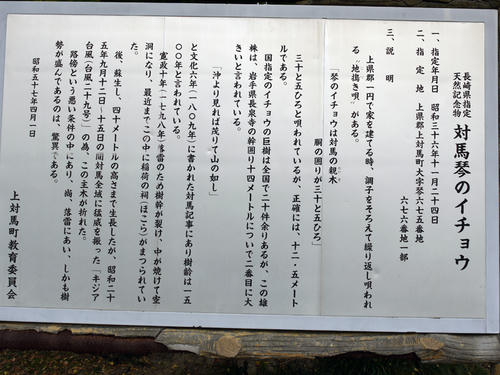 長崎県指定
天然記念物 対馬琴のイチョウ
一、指定年月日 昭和三十六年十一月二十四日
二、指定地 上県郡上対馬町大字琴六七五番地
六七六番地一部
三、説明
上県郡一円で家を建てる時、調子をそろえて繰り返し唄われ
る“地搗き唄”がある。
「琴のイチョウは対馬の親木
胴の囲りが三十と五ひろ」
三十と五ひろと唄われているが、正確には、十二・五メート
ルである。
国指定のイチョウの巨樹は全国で二十件余りあるが、この雄
株は、岩手県長泉寺の幹囲り十四メートルについで二番目に大
きいと言われている。
「沖より見れば茂りて山の如し」
と文化六年(一八〇九年)に書かれた対馬記事にあり樹齢は一五
〇〇年と言われている。
寛政十年(一七九八年)落雷のため樹幹が裂け、中が焼けて空
洞になり、最近までこの中に稲荷の祠(ほこら)がまつられてい
た。
後、蘇生し、四十メートルの高さまで生長したが、昭和二十
五年九月十二日〜十五日の間対馬全域に猛威を振った「キジア
台風(台風二十九号)」の為、この主木が折れた。
路傍という悪い条件の中にあり、尚、落雷にあい、しかも樹
勢が盛んであるのは、驚異である。
昭和五十七年四月一日
上対馬町教育委員会